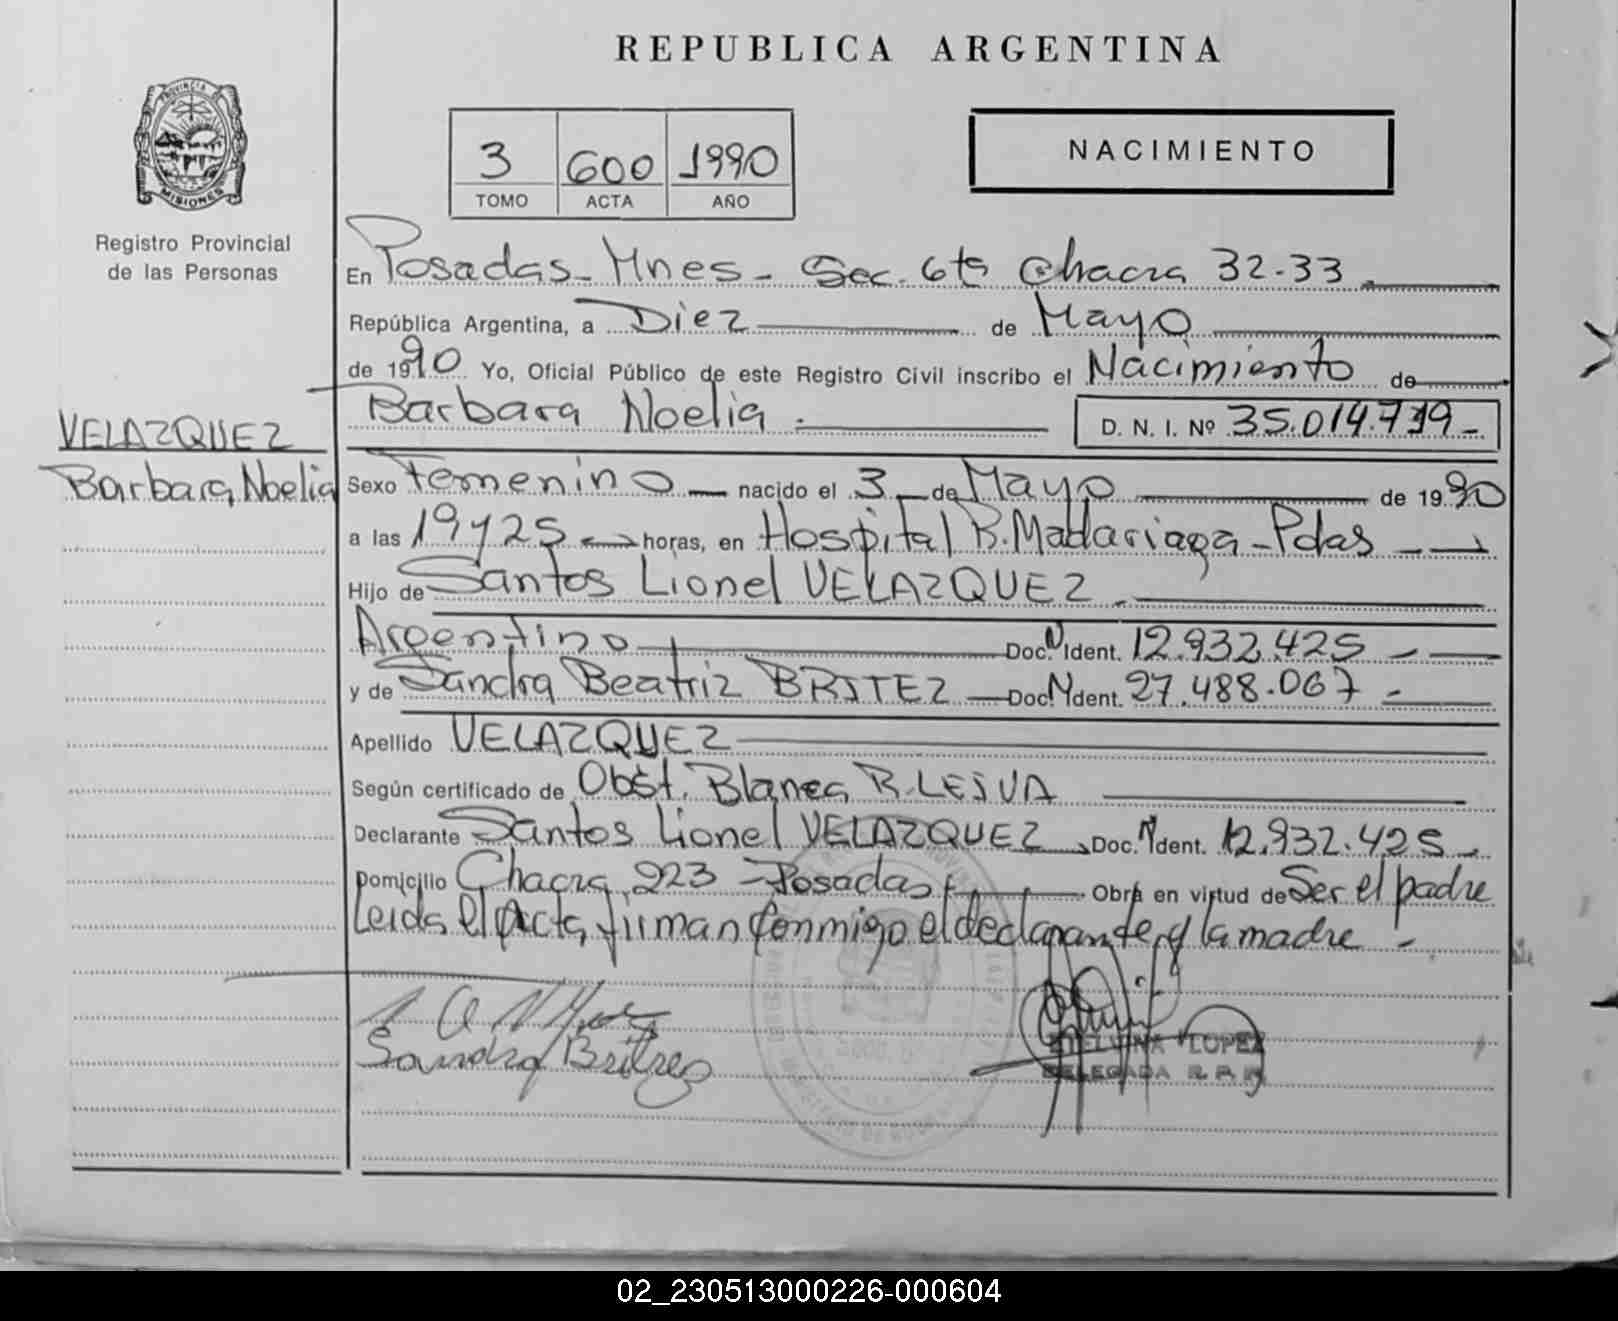 REPUBLICA ARGENTINA
PROVINCIA DE
MISIONES
Registro Provincial
de las Personas
3 600 1990
TOMO ACTA AÑO
NACIMIENTO
En Posadas - Mnes - Sec. 6ta Chacra 32-33
República Argentina, a Diez de Mayo
de 1990 Yo, Oficial Público de este Registro Civil inscribo el Nacimiento de
Barbara Noelia. D. N. I. Nº 35.014.719-
VELAZQUEZ
Barbara Noelia
Sexo Femenino nacido el 3 de Mayo de 1990
a las 19y25 horas, en Hospital R. Madariaga - Pdas
Hijo de Santos Lionel VELAZQUEZ.
Argentino Doc. N Ident. 12.932.425
y de Sandra Beatriz BRITEZ Doc. N Ident. 27.488.067
Apellido VELAZQUEZ
Según certificado de Obst. Blanca R. LEIVA
Declarante Santos Lionel VELAZQUEZ, Doc. N Ident. 12.932.425
Domicilio Chacra 223 - Posadas Obra en virtud de Ser el padre
Leida el Acta, firman conmigo el declarante y la madre -
Sandra Britez
ETELVINA LOPEZ
DELEGADA R. P. P.
02_230513000226-000604